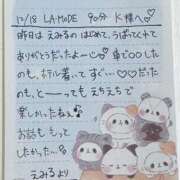 12/18 LA-MODE 90分 K様へ♡
昨日は えみるの はじめて、うばってくれて
ありがとうだったよー♡ 車で○○した
のも、ホテル着いて すぐ…♡♡だった
のも、と——っても えちえち で
楽しかったねぇ♪
お話も もって
したかったー。
えみるより